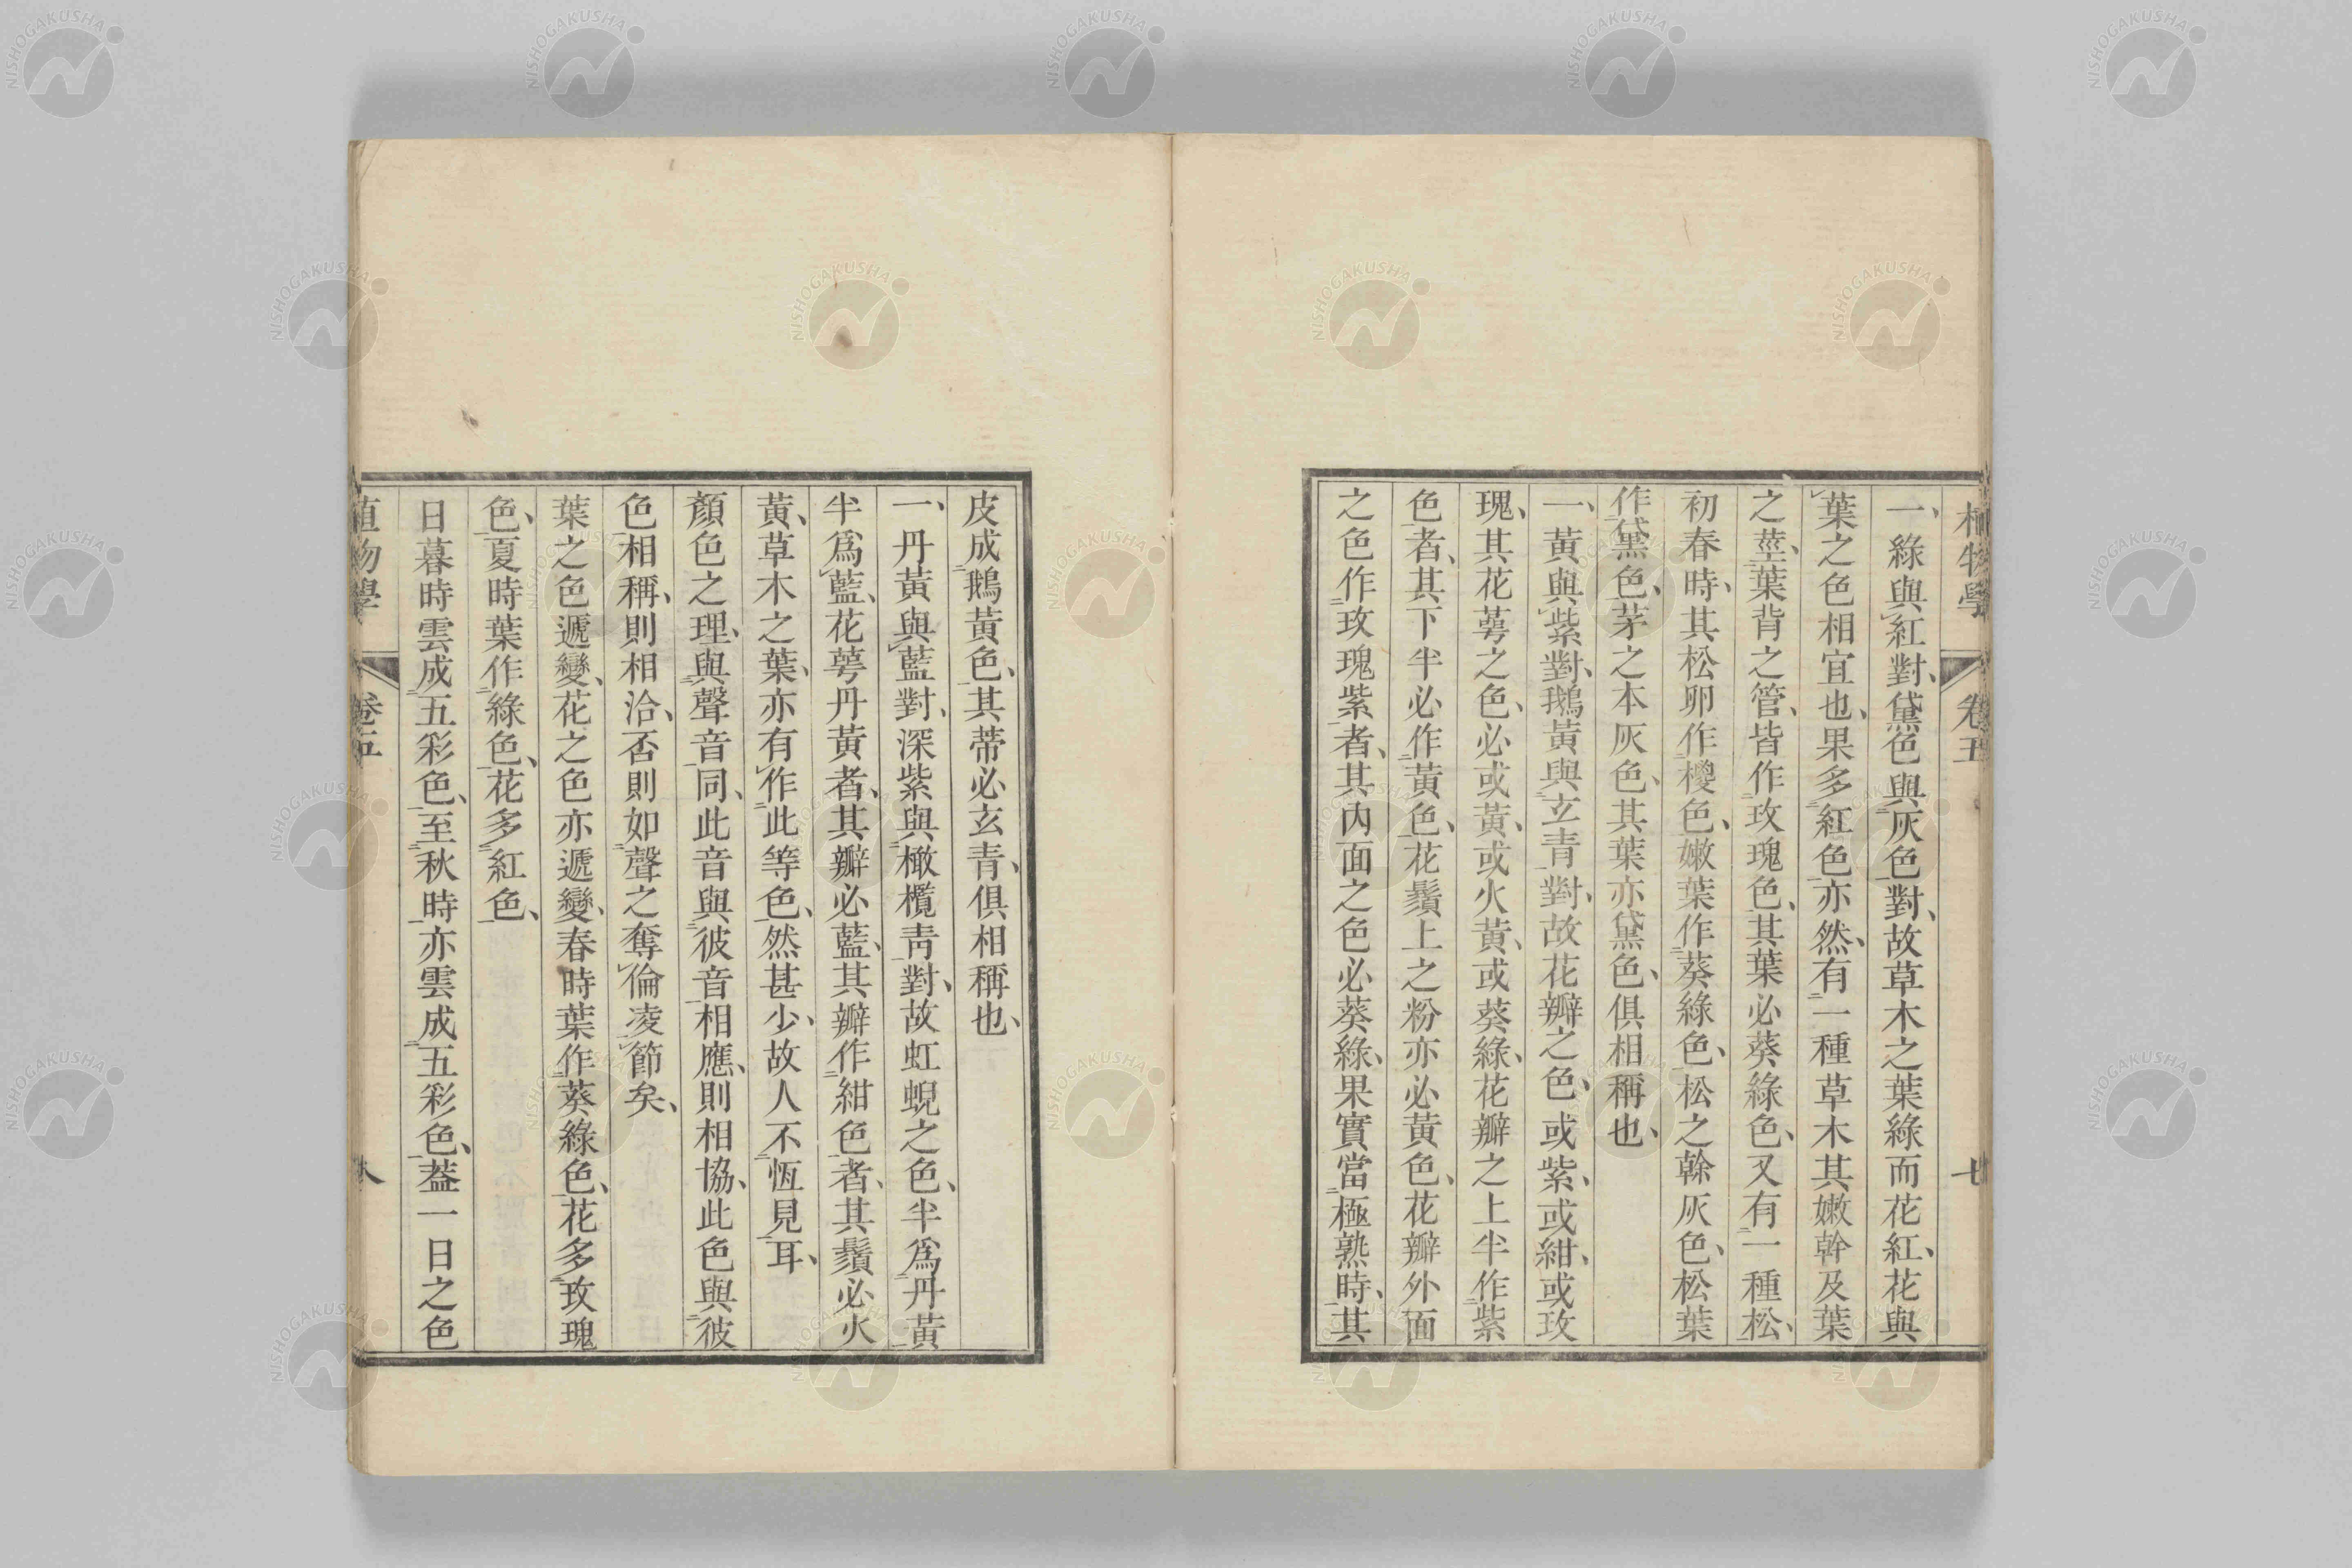 植物學 卷五 七
一、綠與紅對、黛色與灰色對、故草木之葉綠而花紅、花與
葉之色相宜也、果多紅色亦然、有一種草木其嫩幹及葉
之莖、葉背之管、皆作玫瑰色、其葉必葵綠色、又有一種松、
初春時、其松卵作㯶色、嫩葉作葵綠色、松之榦灰色、松葉
作黛色、茅之本灰色、其葉亦黛色、俱相稱也、
一、黃與紫對、鵝黃與玄青對、故花瓣之色、或紫、或紺、或玫
瑰、其花萼之色、必或黃、或火黃、或葵綠、花瓣之上半作紫
色者、其下半必作黃色、花鬚上之粉亦必黃色、花瓣外面
之色作玫瑰紫者、其內面之色必葵綠、果實當極熟時、其
皮成鵝黃色、其蒂必玄青、俱相稱也、
一、丹黃與藍對、深紫與橄欖靑對、故虹蜺之色、半爲丹黃
半爲藍、花萼丹黃者、其瓣必藍、其瓣作紺色者、其鬚必火
黃、草木之葉、亦有作此等色、然甚少、故人不恆見耳、
顏色之理、與聲音同、此音與彼音相應、則相協、此色與彼
色相稱、則相洽、否則如聲之奪倫凌節矣、
葉之色遞變、花之色亦遞變、春時葉作葵綠色、花多玫瑰
色、夏時葉作綠色、花多紅色、
日暮時雲成五彩色、至秋時亦雲成五彩色、葢一日之色
植物學 卷五 八
NISHOGAKUSHA
NISHOGAKUSHA
NISHOGAKUSHA
NISHOGAKUSHA
NISHOGAKUSHA
NISHOGAKUSHA
NISHOGAKUSHA
NISHOGAKUSHA
NISHOGAKUSHA
NISHOGAKUSHA
NISHOGAKUSHA
NISHOGAKUSHA
NISHOGAKUSHA
NISHOGAKUSHA